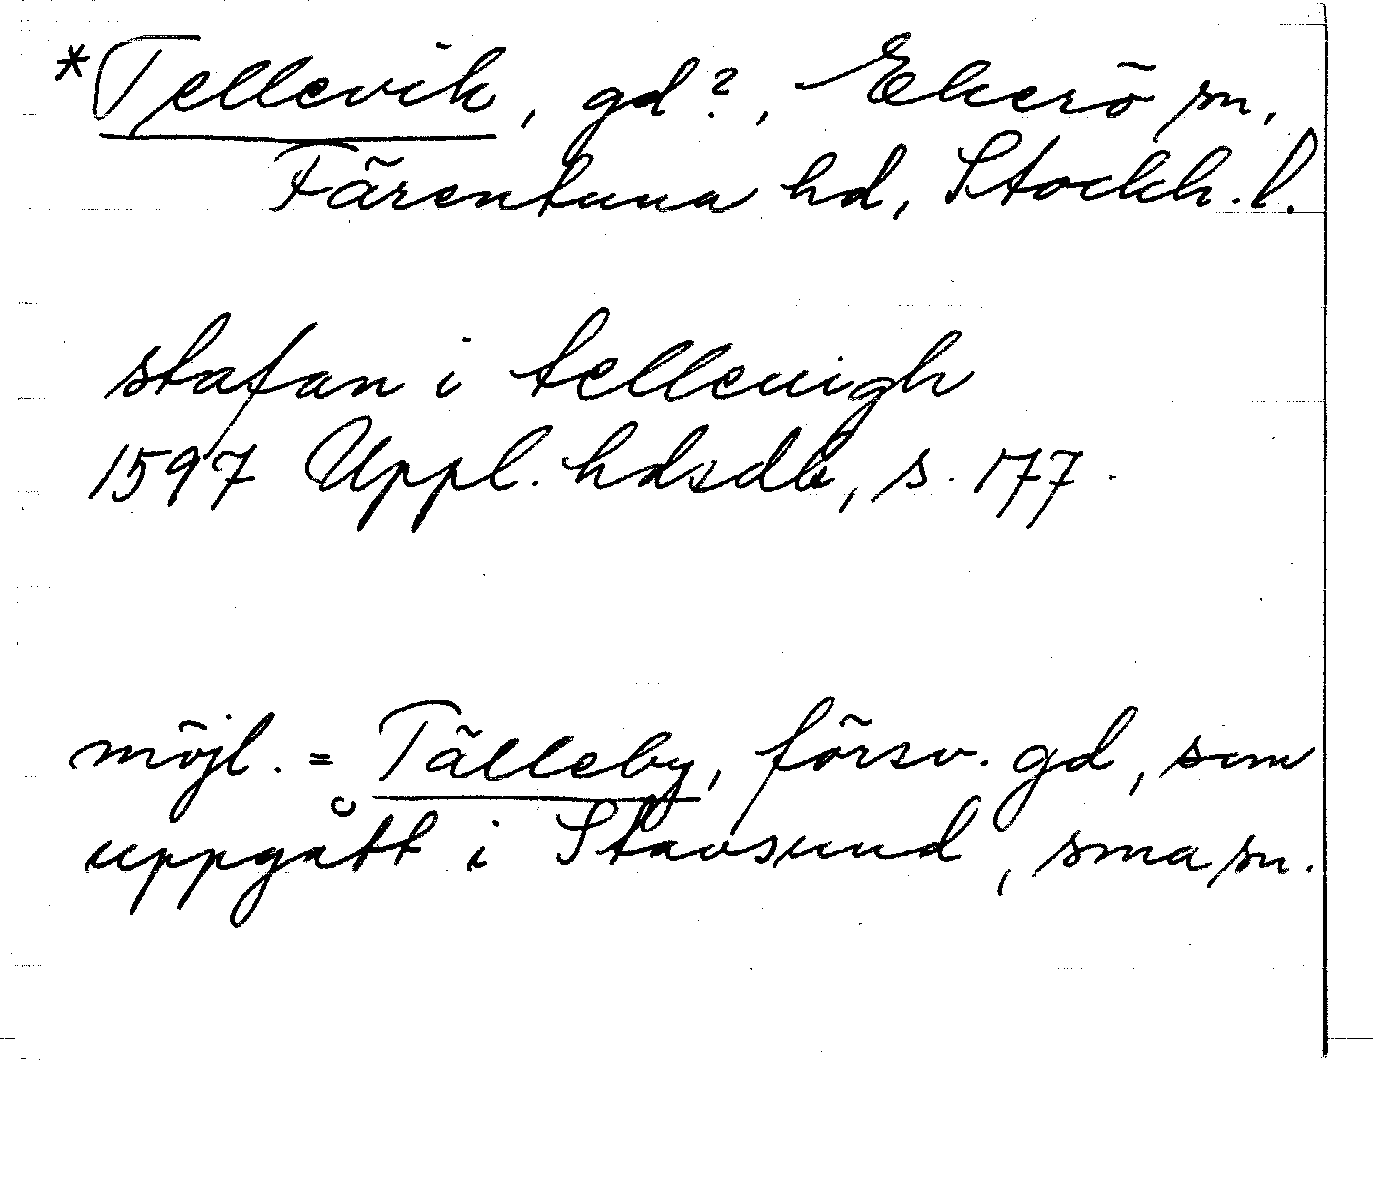 *Tellevik, gd?, Ekerö sn,
Färentuna hd, Stockh. l.
stafan i telleuigh
1597 Uppl. hdsdb, s. 177.
möjl. = Tälleby, försv. gd, som
uppgått i Stavsund, sma sn.